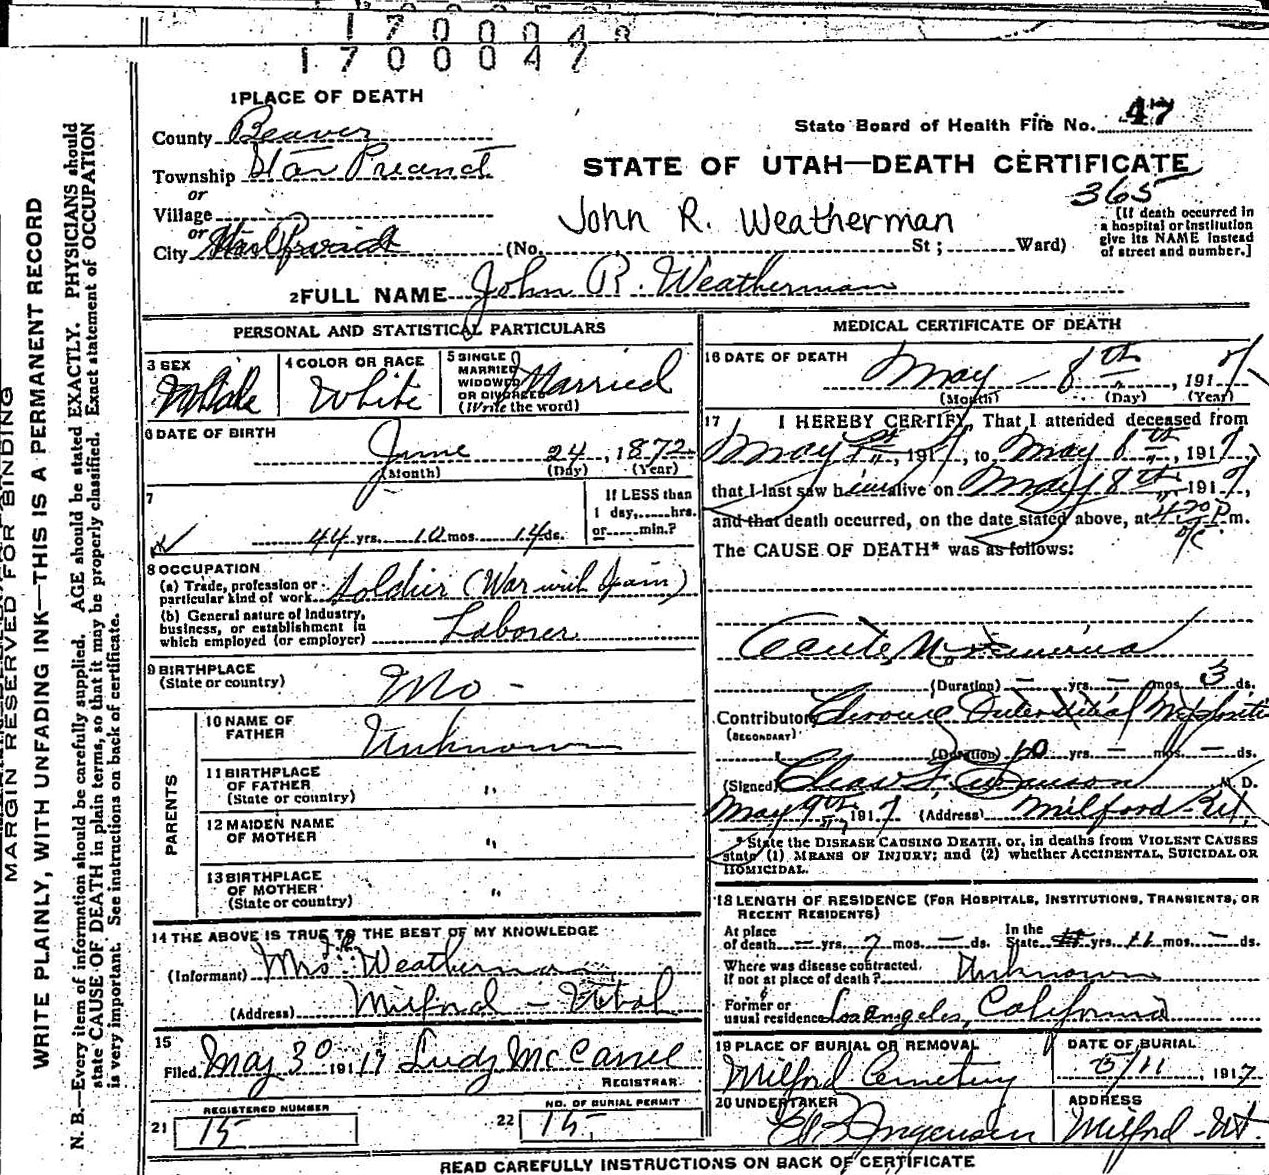 1700048
1700047
1 PLACE OF DEATH
County Beaver
State Board of Health File No. 47
Township Star Precinct
STATE OF UTAH—DEATH CERTIFICATE
or
365
Village
John R. Weatherman
or
City (No. St; Ward)
[If death occurred in
a hospital or institution
give its NAME instead
of street and number.]
2 FULL NAME John R. Weatherman
PERSONAL AND STATISTICAL PARTICULARS
3 SEX
Male
4 COLOR OR RACE
White
5 SINGLE
MARRIED
WIDOWED
OR DIVORCED
(Write the word)
Married
6 DATE OF BIRTH
June 24, 1872
(Month) (Day) (Year)
7
44 yrs. 10 mos. 14 ds.
If LESS than
1 day, hrs.
or min.?
8 OCCUPATION
(a) Trade, profession or
particular kind of work Soldier (War with Spain)
(b) General nature of industry,
business, or establishment in
which employed (or employer) Laborer
9 BIRTHPLACE
(State or country) Mo -
PARENTS
10 NAME OF
FATHER Unknown
11 BIRTHPLACE
OF FATHER
(State or country) "
12 MAIDEN NAME
OF MOTHER "
13 BIRTHPLACE
OF MOTHER
(State or country) "
14 THE ABOVE IS TRUE TO THE BEST OF MY KNOWLEDGE
(Informant) Mrs J.R. Weatherman
(Address) Milford - Utah
15
Filed May 30 1917
REGISTRAR
REGISTERED NUMBER
21 15
NO. OF BURIAL PERMIT
22 15
MEDICAL CERTIFICATE OF DEATH
16 DATE OF DEATH
May 8th, 1917
(Month) (Day) (Year)
17 I HEREBY CERTIFY, That I attended deceased from
May, 1917, to May 8th, 1917,
that I last saw him alive on May 8th 1917,
and that death occurred, on the date stated above, at 4:20 P m.
The CAUSE OF DEATH* was as follows:
Acute Uraemia
(Duration) — yrs. — mos. 3 ds.
Contributory Chronic Interstitial Nephritis
(SECONDARY)
(Duration) 10 yrs. — mos. — ds.
(Signed) M. D.
May 9th, 1917 (Address) Milford Ut,
* State the DISEASE CAUSING DEATH, or, in deaths from VIOLENT CAUSES
state (1) MEANS OF INJURY; and (2) whether ACCIDENTAL, SUICIDAL OR
HOMICIDAL.
18 LENGTH OF RESIDENCE (FOR HOSPITALS, INSTITUTIONS, TRANSIENTS, OR
RECENT RESIDENTS)
At place
of death — yrs. 7 mos. — ds.
In the
State yrs. 11 mos. — ds.
Where was disease contracted,
if not at place of death? Unknown
Former or
usual residence Los Angeles, California
19 PLACE OF BURIAL OR REMOVAL
Milford Cemetery
DATE OF BURIAL
5/11, 1917
20 UNDERTAKER
ADDRESS
Milford - Ut.
READ CAREFULLY INSTRUCTIONS ON BACK OF CERTIFICATE
MARGIN RESERVED FOR BINDING
WRITE PLAINLY, WITH UNFADING INK—THIS IS A PERMANENT RECORD
N. B.—Every item of information should be carefully supplied. AGE should be stated EXACTLY. PHYSICIANS should
state CAUSE OF DEATH in plain terms, so that it may be properly classified. Exact statement of OCCUPATION
is very important. See instructions on back of certificate.